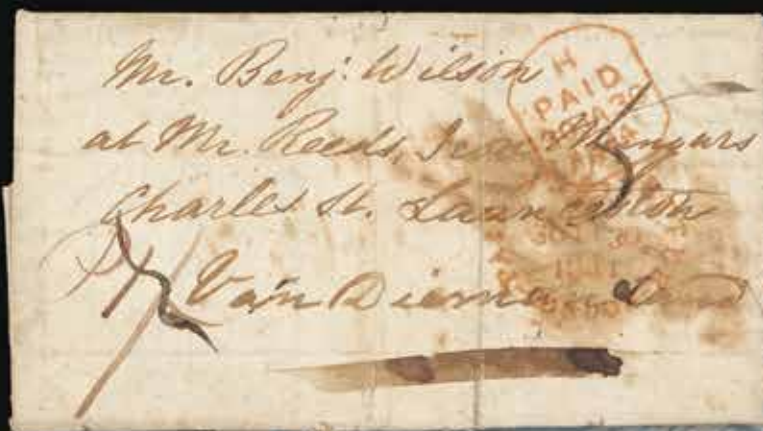 Mr. Benj: Wilson
at Mr. Reeds, Iron Mongers
Charles St. Launceston
Van Diemans Land
H
PAID